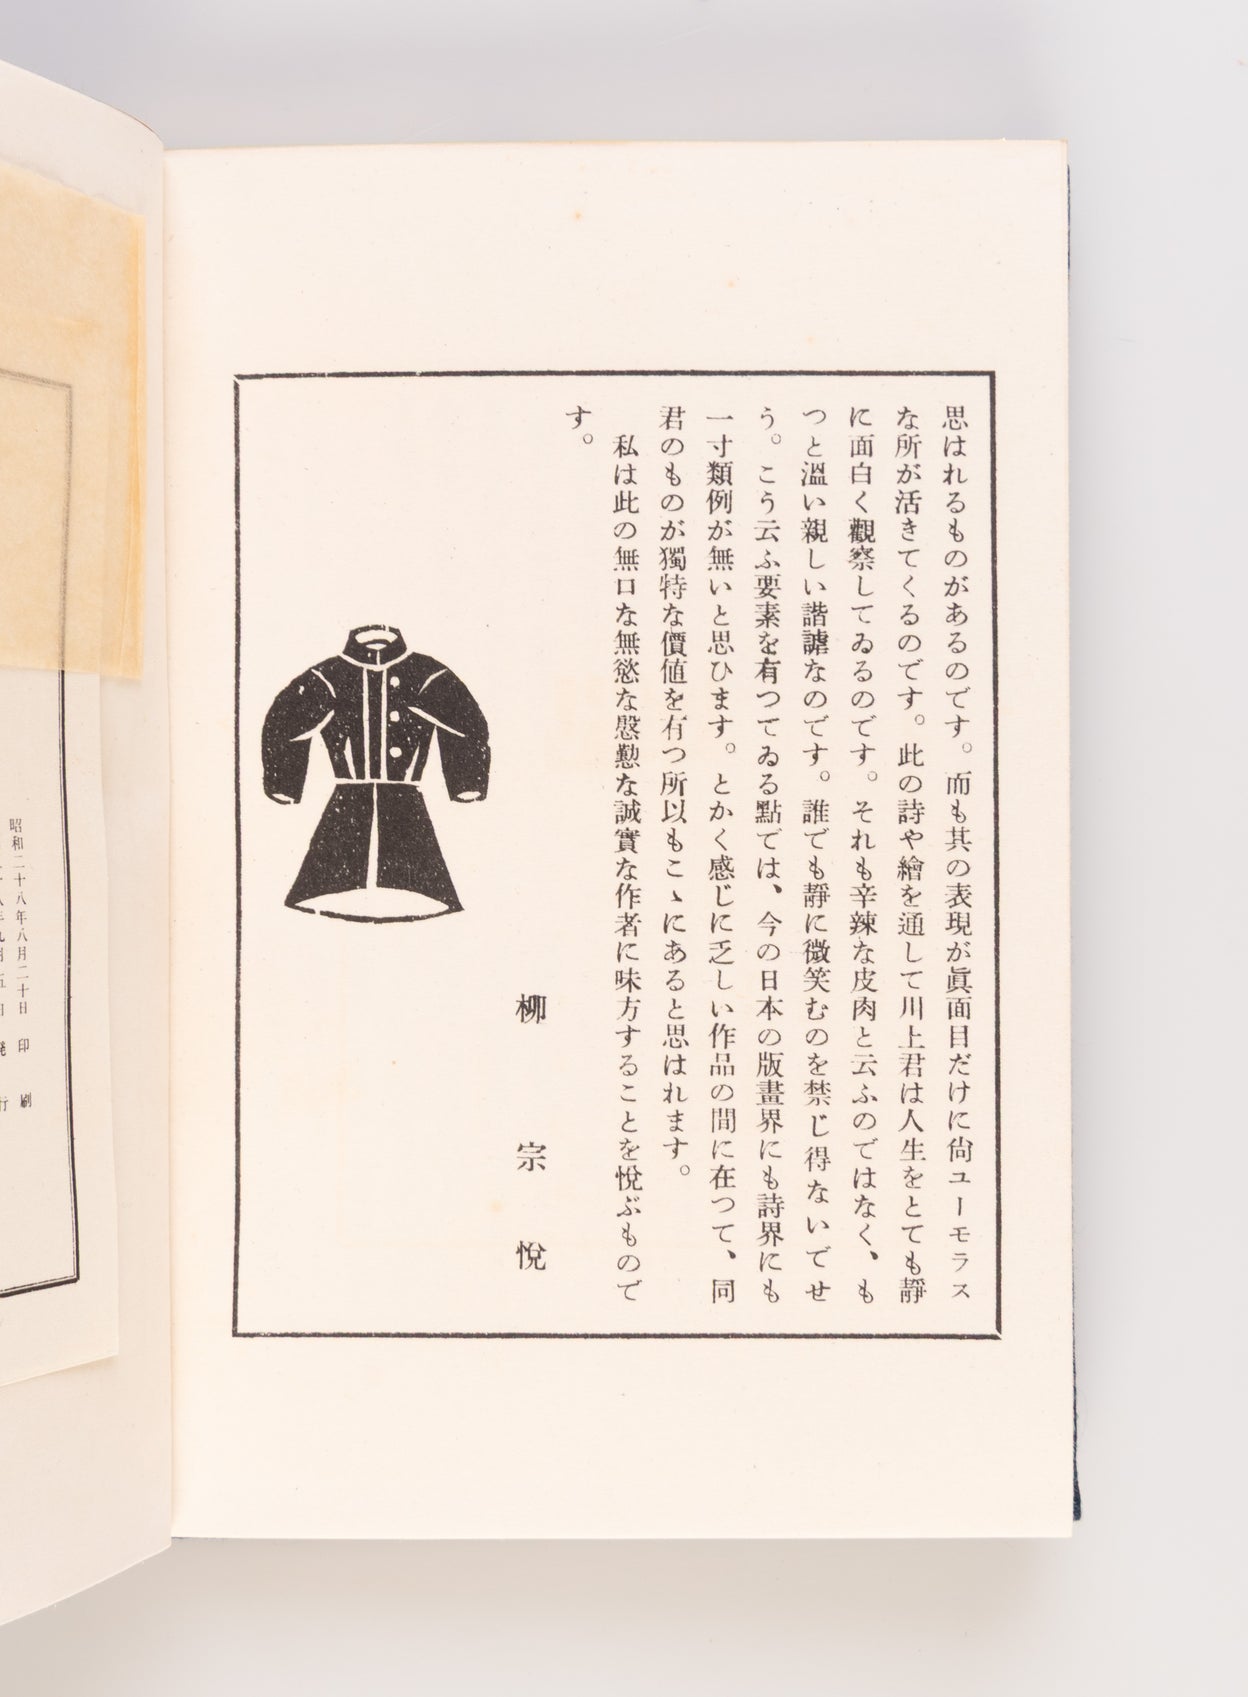 思はれるものがあるのです。而も其の表現が眞面目だけに尙ユーモラス
な所が活きてくるのです。此の詩や繪を通して川上君は人生をとても靜
に面白く觀察してゐるのです。それも辛辣な皮肉と云ふのではなく、も
つと溫い親しい諧謔なのです。誰でも靜に微笑むのを禁じ得ないでせ
う。こう云ふ要素を有つてゐる點では、今の日本の版畫界にも詩界にも
一寸類例が無いと思ひます。とかく感じに乏しい作品の間に在つて、同
君のものが獨特な價値を有つ所以もこゝにあると思はれます。
私は此の無口な無慾な慇懃な誠實な作者に味方することを悅ぶもので
す。
柳宗悅
昭和二十八年八月二十日 印刷